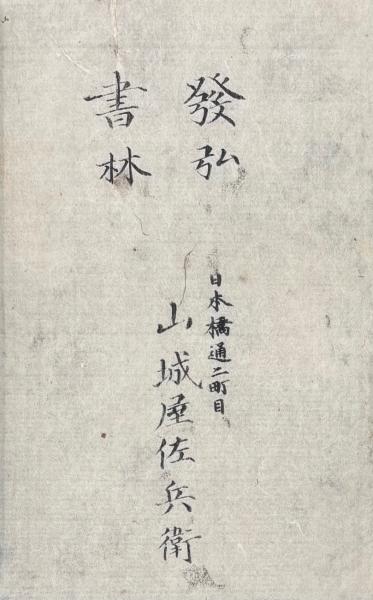 發弘
書林
日本橋通二町目
山城屋佐兵衛